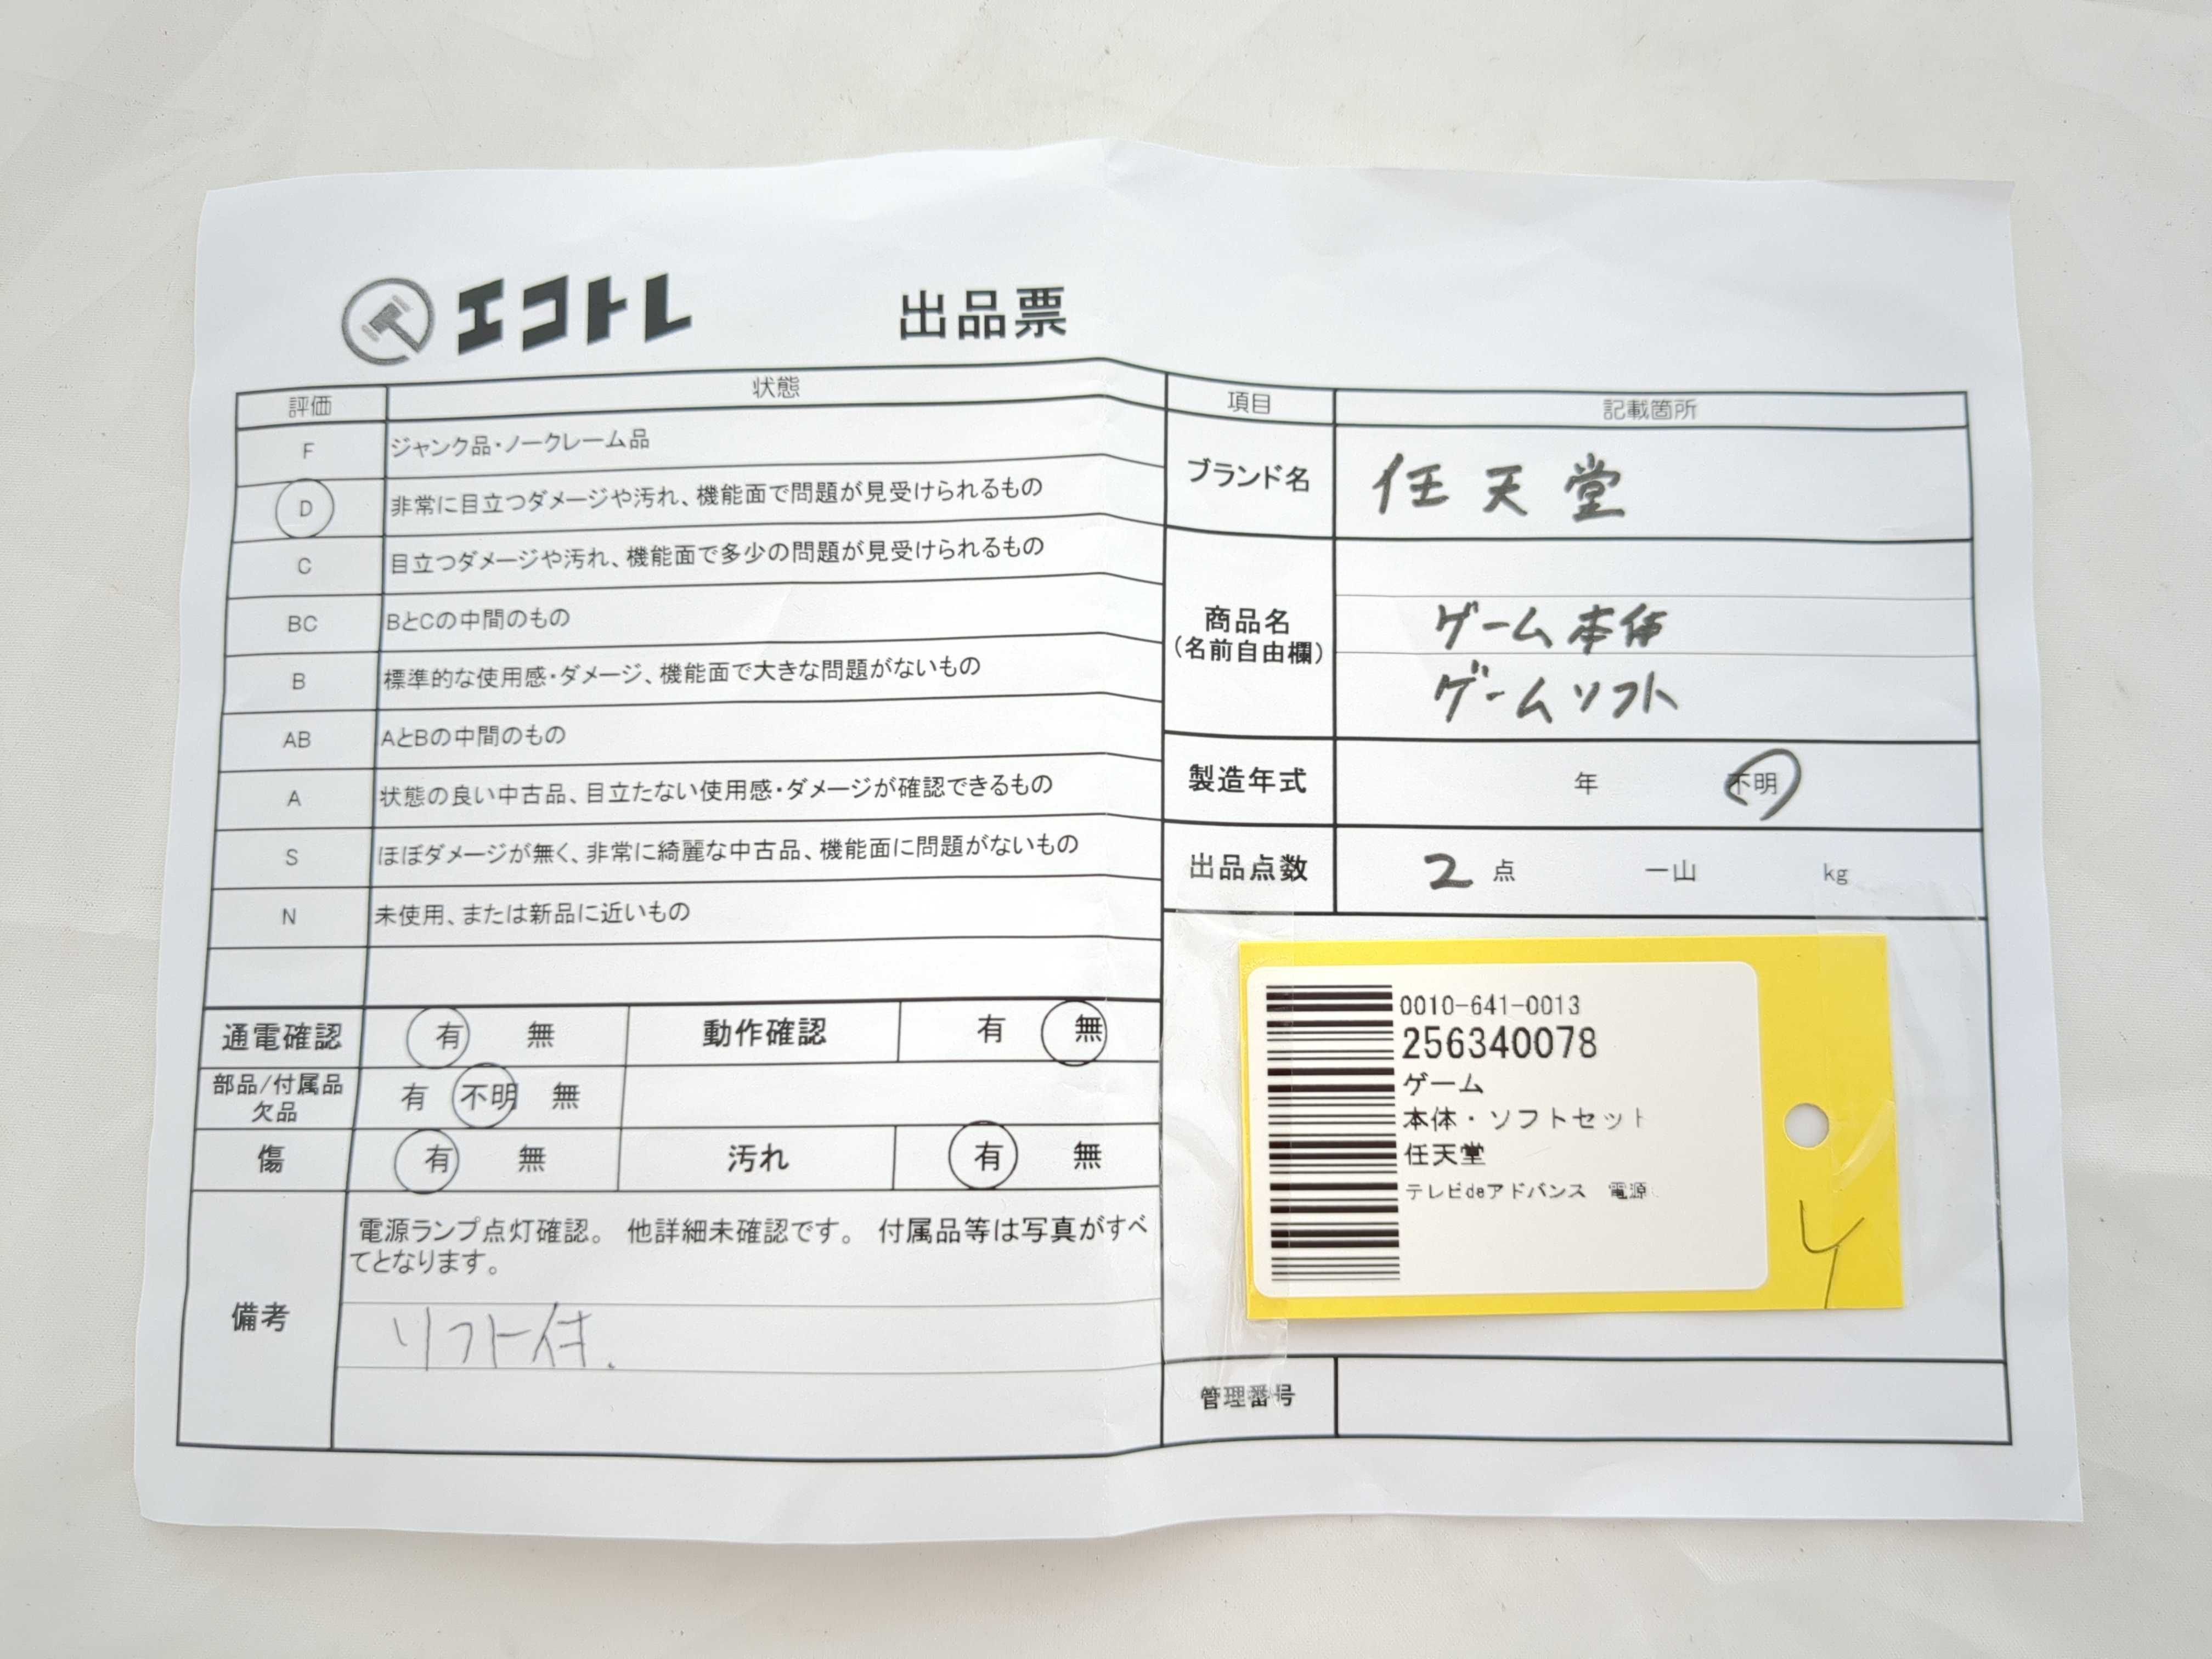 エコトレ
出品票
評価 状態
F ジャンク品・ノークレーム品
D 非常に目立つダメージや汚れ、機能面で問題が見受けられるもの
C 目立つダメージや汚れ、機能面で多少の問題が見受けられるもの
BC BとCの中間のもの
B 標準的な使用感・ダメージ、機能面で大きな問題がないもの
AB AとBの中間のもの
A 状態の良い中古品、目立たない使用感・ダメージが確認できるもの
S ほぼダメージが無く、非常に綺麗な中古品、機能面に問題がないもの
N 未使用、または新品に近いもの
通電確認 有 無 動作確認 有 無
部品/付属品
欠品
有 不明 無
傷 有 無 汚れ 有 無
備考
電源ランプ点灯確認。 他詳細未確認です。 付属品等は写真がすべ
てとなります。
ソフト付.
項目 記載箇所
ブランド名 任天堂
商品名
(名前自由欄)
ゲーム本体
ゲームソフト
製造年式 年 不明
出品点数 2 点 一山 kg
0010-641-0013
256340078
ゲーム
本体・ソフトセット
任天堂
テレビdeアドバンス 電源
管理番号